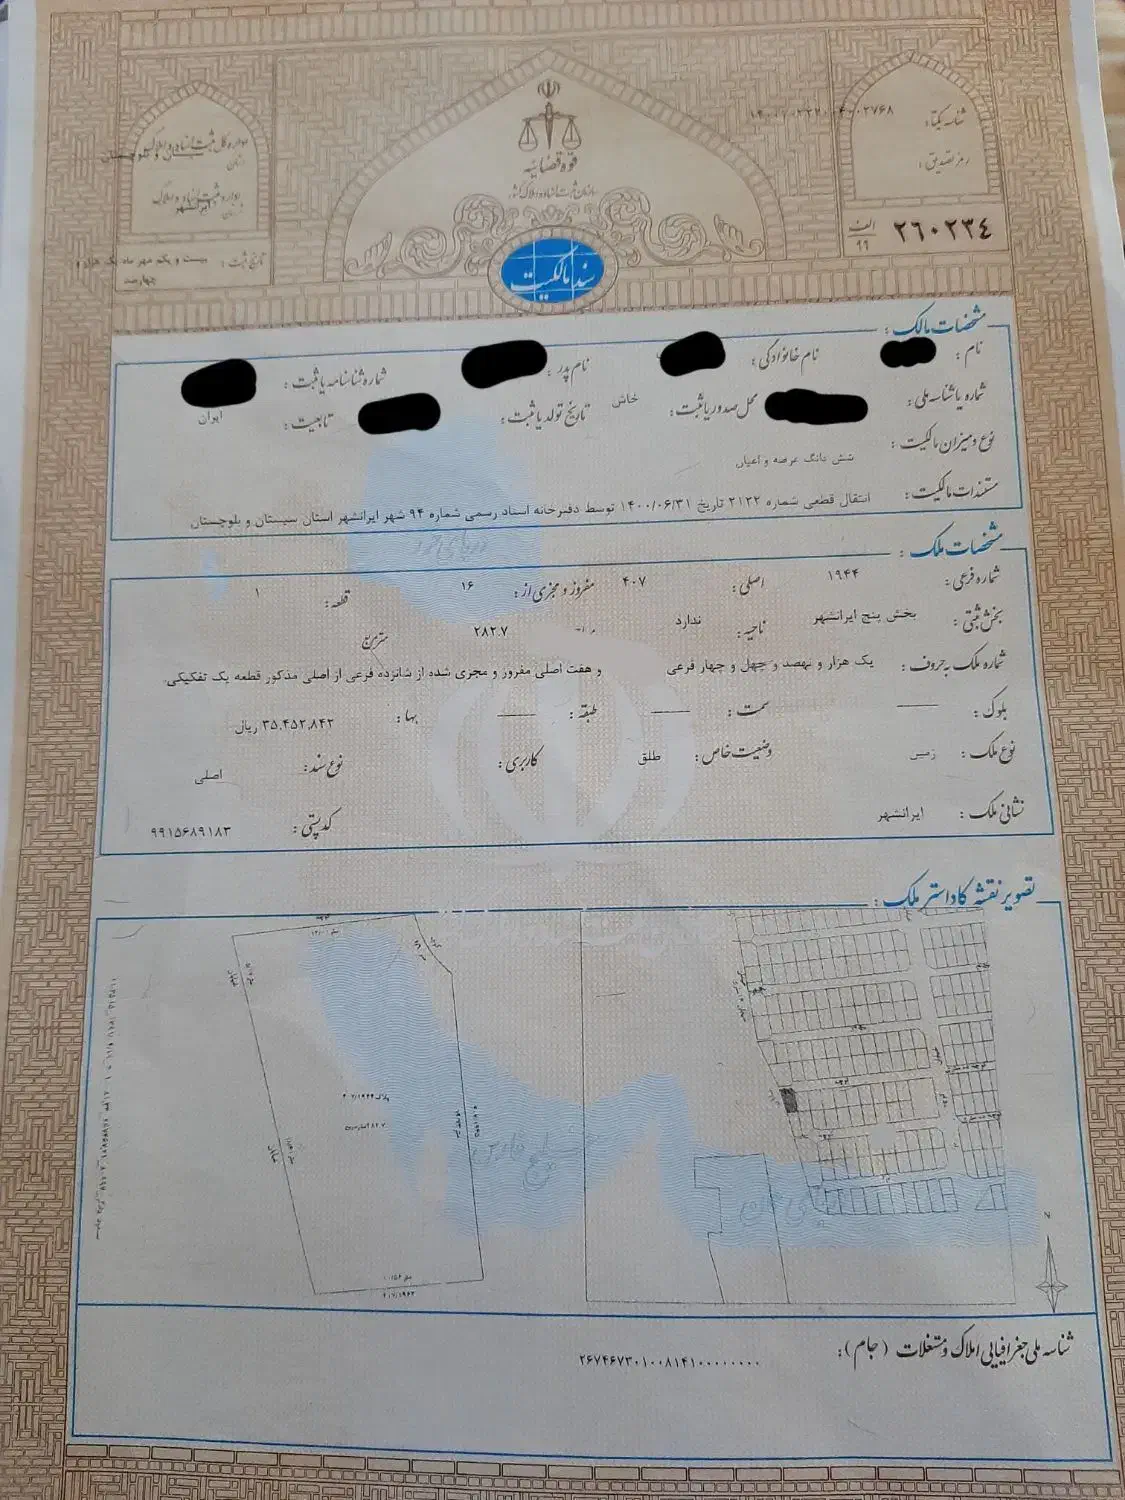 شناسه یکتا:
رمز تصدیق:
الف
۹۹
۲۶۰۲۳۴
قوه قضائیه
سازمان ثبت اسناد و املاک کشور
سند مالکیت
اداره کل ثبت اسناد و املاک
استان سیستان و بلوچستان
اداره ثبت اسناد و املاک
ایرانشهر
تاریخ ثبت: بیست و یکم مهر ماه یک هزار و
چهارصد
مشخصات مالک:
نام: نام خانوادگی: نام پدر: شماره شناسنامه یا ثبت:
شماره یا شناسه ملی: محل صدور یا ثبت: خاش تاریخ تولد یا ثبت: تابعیت: ایران
نوع و میزان مالکیت: شش دانگ عرصه و اعیان
مستندات مالکیت: انتقال قطعی شماره ۲۱۳۲ تاریخ ۱۴۰۰/۰۶/۳۱ توسط دفترخانه اسناد رسمی شماره ۹۴ شهر ایرانشهر استان سیستان و بلوچستان
مشخصات ملک:
شماره فرعی: ۱۹۴۴ اصلی: ۴۰۷ مفروز و مجزی از: ۱۶ قطعه: ۱
بخش ثبتی: بخش پنج ایرانشهر ناحیه: ندارد ۲۸۲.۷ مترمربع
شماره ملک به حروف: یک هزار و نهصد و چهل و چهار فرعی و هفت اصلی مفروز و مجزی شده از شانزده فرعی از اصلی مذکور قطعه یک تفکیکی.
بلوک: سمت: طبقه: بها: ۳۵,۴۵۲,۸۴۲ ریال
نوع ملک: زمین وضعیت خاص: طلق کاربری: نوع سند: اصلی
نشانی ملک: ایرانشهر کد پستی: ۹۹۱۵۶۸۹۱۸۳
تصویر نقشه کاداستر ملک:
پلاک ۴۰۷/۱۹۴۴
خلیج فارس
N
شناسه ملی جغرافیایی املاک و مستغلات (جام):